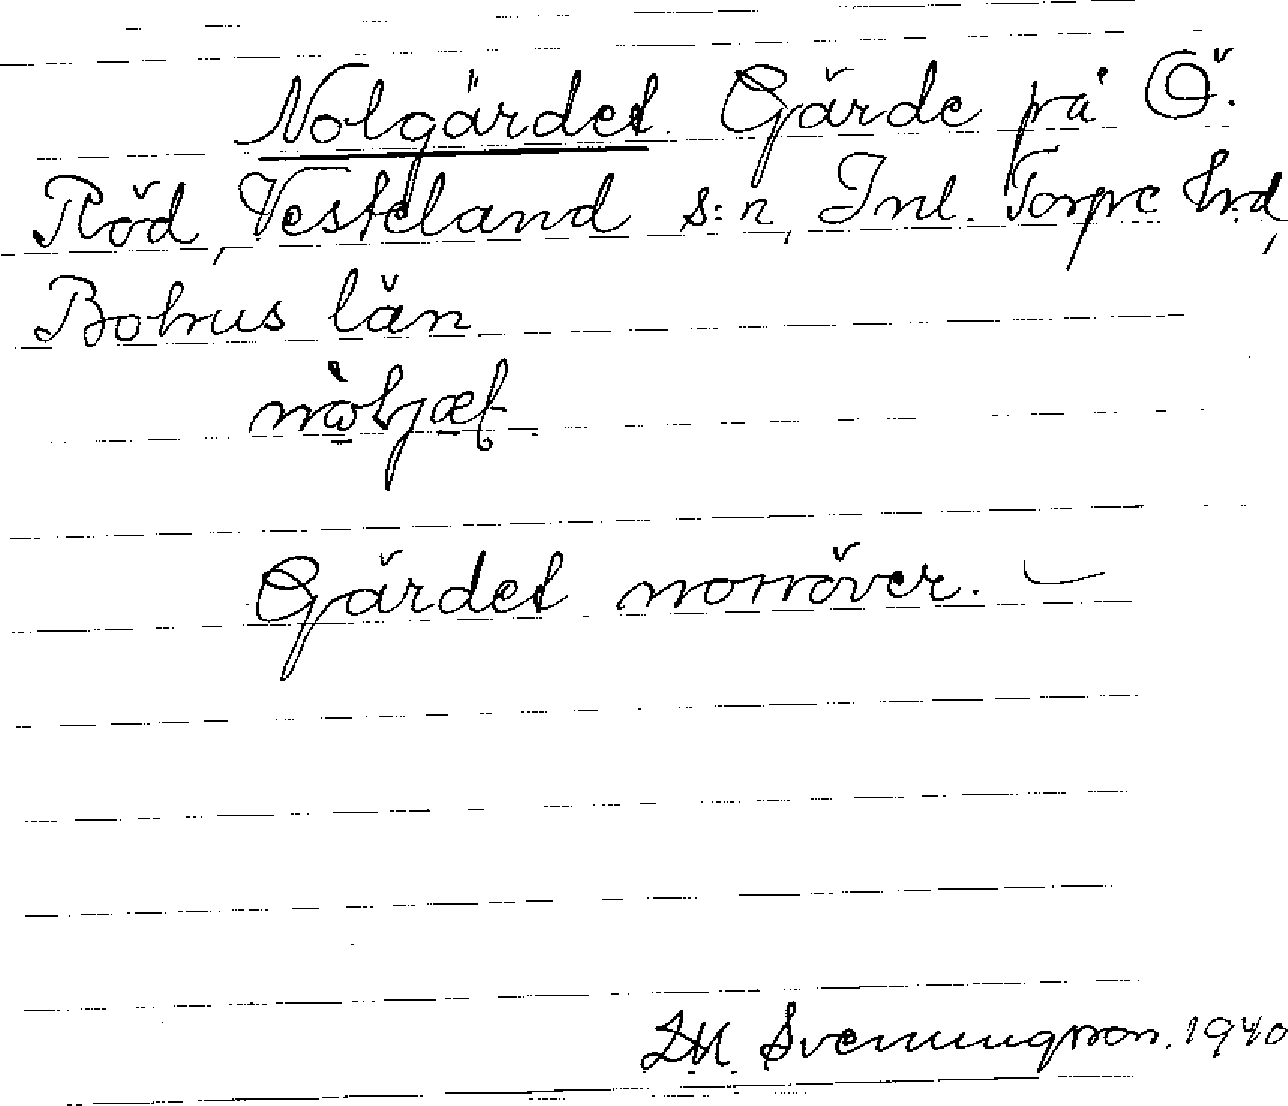 Nolgärdet. Gärde på Ö.
Röd, Vesteland s:n, Inl. Torpe hrd,
Bohus län.
Gärdet norröver.
Svenungsson. 1940